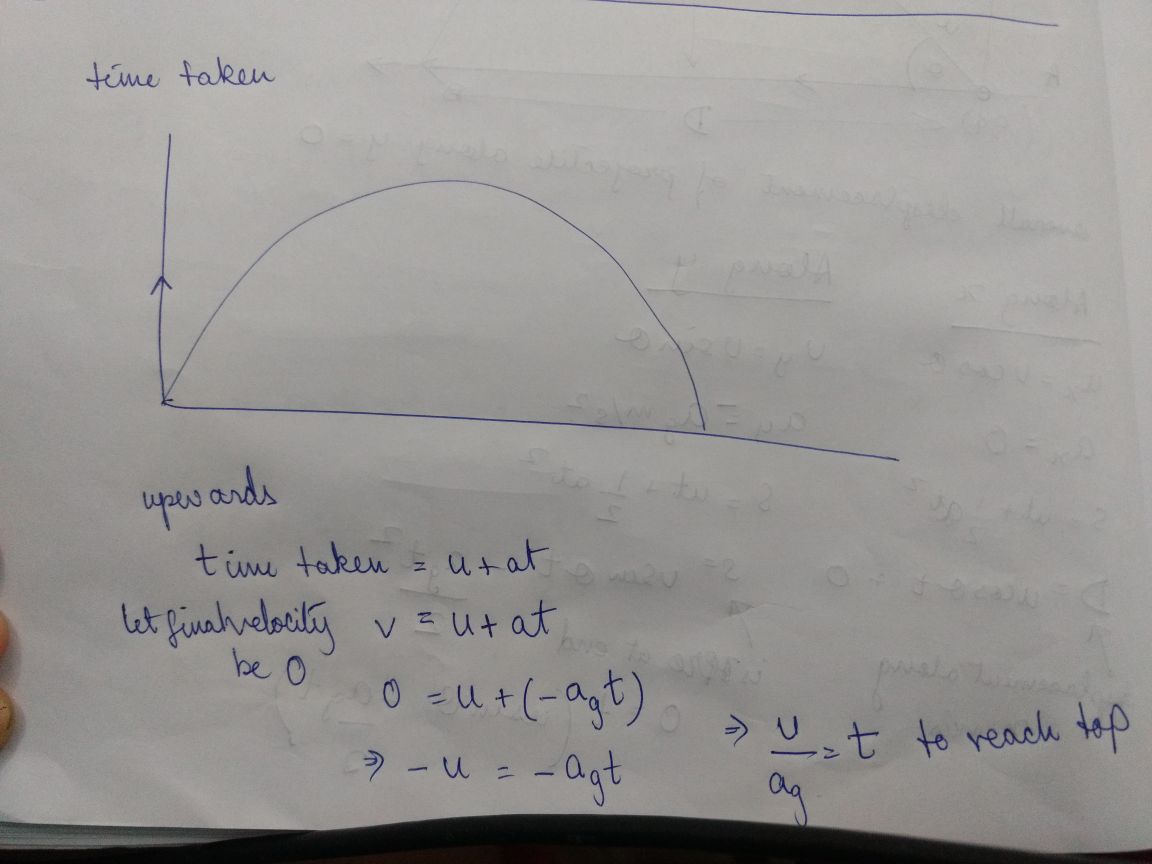 time taken
upwards
time taken = u + at
let final velocity v = u + at
be 0
0 = u + (-a_g t)
⇒ -u = -a_g t
⇒ u/a_g = t to reach top